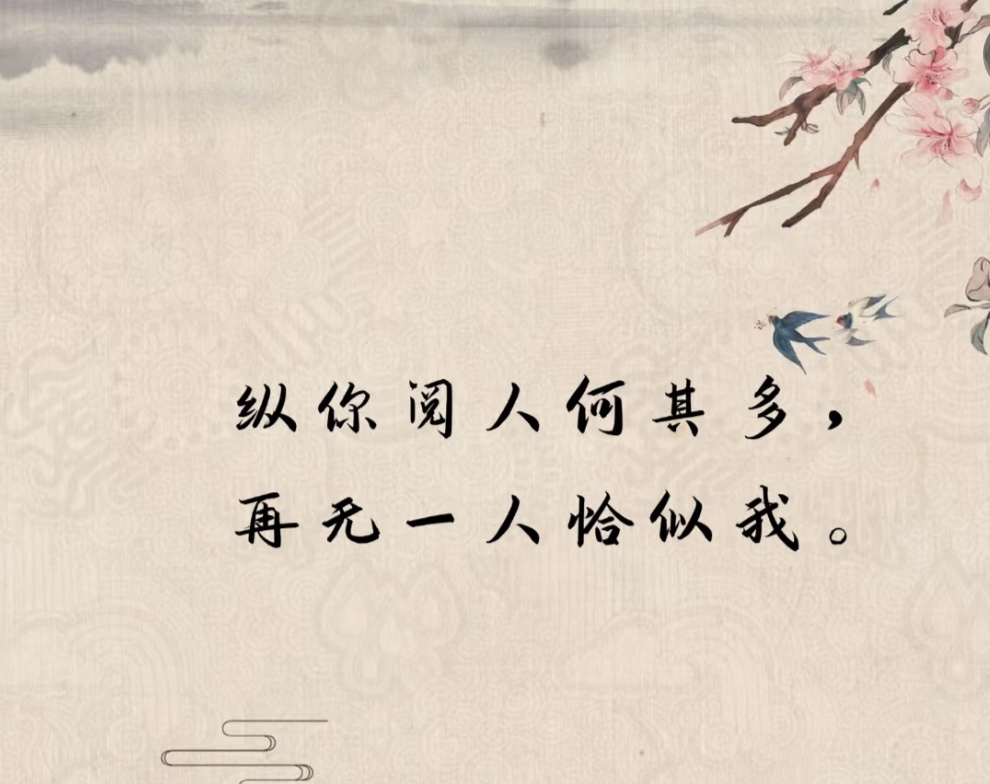 纵你阅人何其多，
再无一人恰似我。